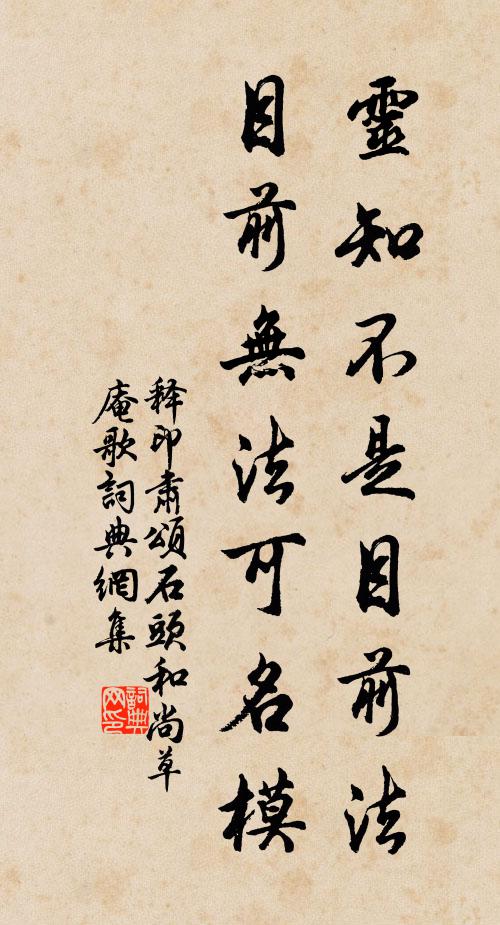 靈知不是目前法
目前無法可名模
释印肅頌石頭和尚草
庵歌詞典網集
詞典网印